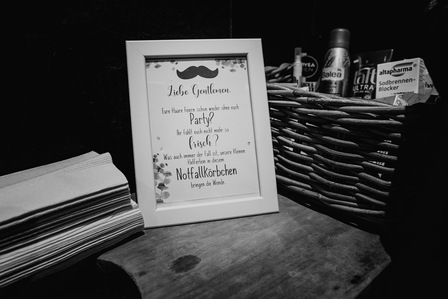 Liebe Gentlemen,
Eure Haare feiern schon wieder ohne euch
Party?
Ihr fühlt euch nicht mehr so
frisch?
Was auch immer der Fall ist, unsere kleinen
Helferlein in diesem
Notfallkörbchen
bringen die Wende.
NIVEA
Balea
ULTRA
altapharma
Sodbrennen-
Blocker